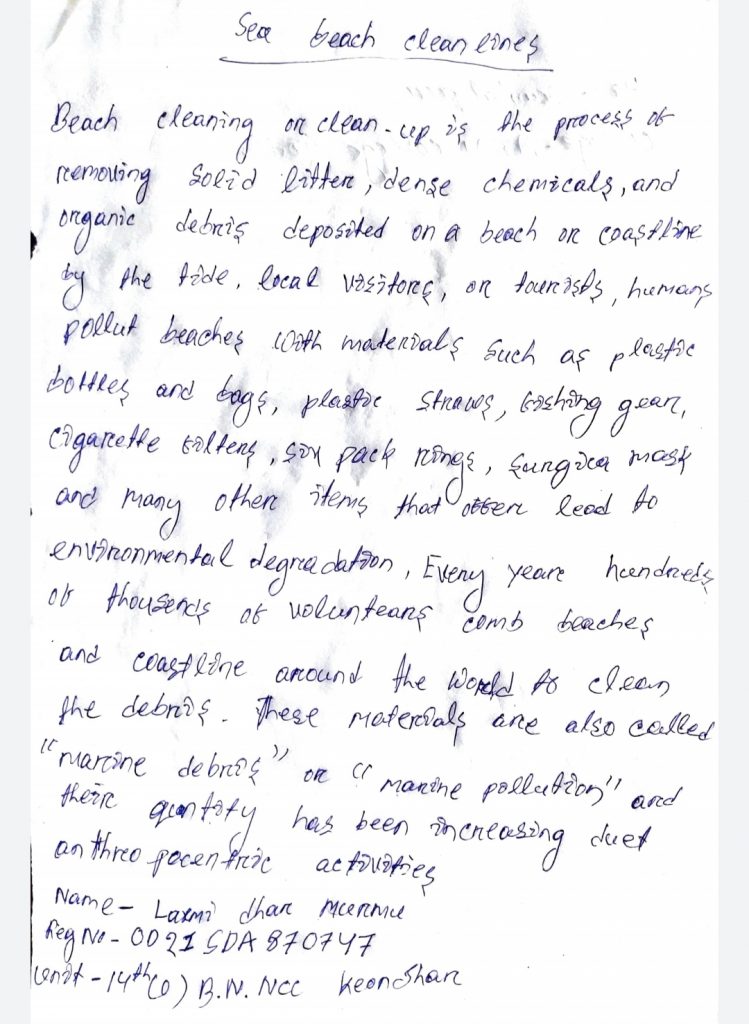 Sea beach cleanlines
Beach cleaning or clean-up is the process of
removing solid litter, dense chemicals, and
organic debris deposited on a beach or coastline
by the tide, local visitors, or tourists, humans
pollut beaches with materials such as plastic
bottles and bags, plastic straws, fishing gear,
cigarette filters, six pack rings, surgica mask
and many other items that often lead to
environmental degradation, Every year hundreds
of thousends of voluntears comb beaches
and coastline around the World to clean
the debris. These materials are also called
"marine debris" or "marine pollution" and
their quntity has been increasing duet
anthropocentric activities
Name- Laxmi dhar murmu
Reg No- OD21SDA870747
unit-14th(O) B.N. Ncc Keonjhar